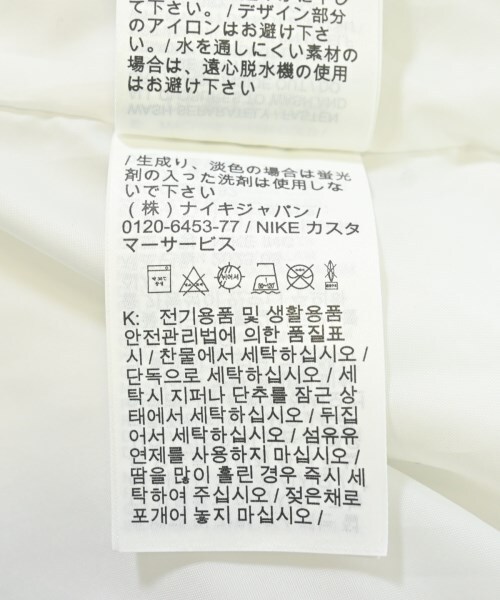 て下さい。 / デザイン部分
のアイロンはお避け下さ
い。/ 水を通しにくい素材の
場合は、遠心脱水機の使用
はお避け下さい
/ 生成り、淡色の場合は蛍光
剤の入った洗剤は使用しな
いで下さい
(株)ナイキジャパン /
0120-6453-77 / NIKE カスタ
マーサービス
K: 전기용품 및 생활용품
안전관리법에 의한 품질표
시 / 찬물에서 세탁하십시오 /
단독으로 세탁하십시오 / 세
탁시 지퍼나 단추를 잠근 상
태에서 세탁하십시오 / 뒤집
어서 세탁하십시오 / 섬유유
연제를 사용하지 마십시오 /
땀을 많이 흘린 경우 즉시 세
탁하여 주십시오 / 젖은채로
포개어 놓지 마십시오 /